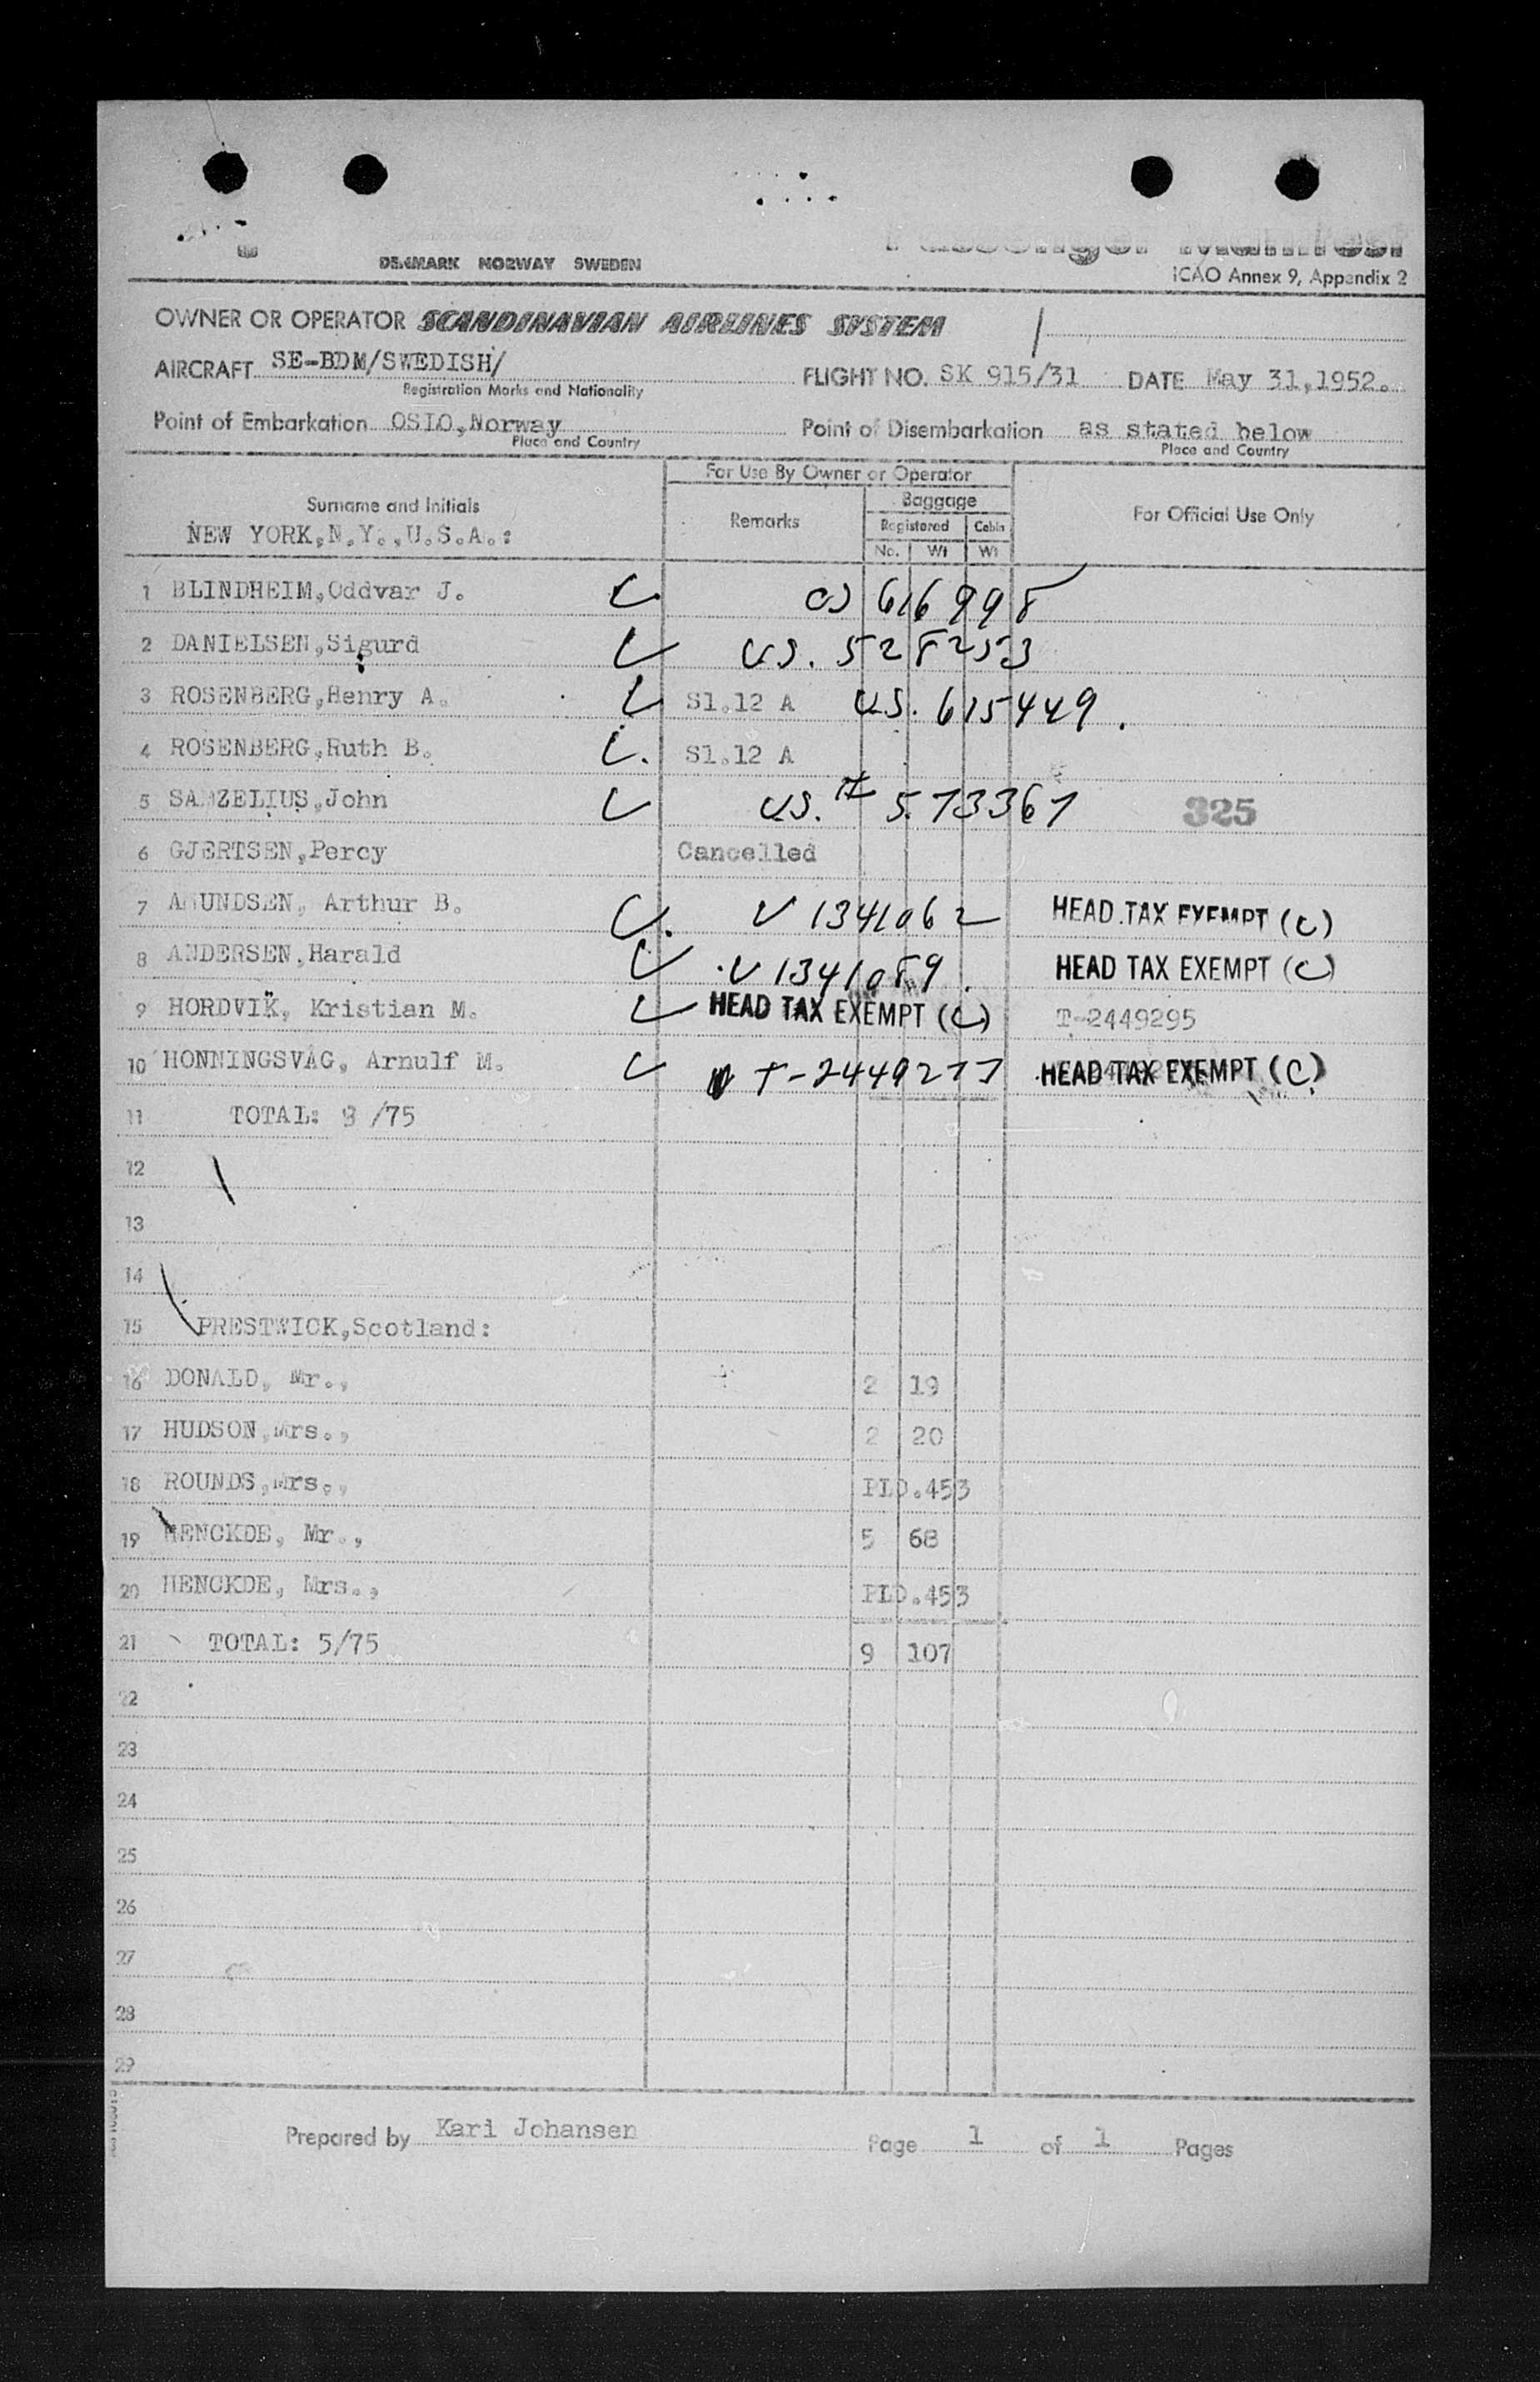 Passenger Manifest
DENMARK NORWAY SWEDEN
ICAO Annex 9, Appendix 2
OWNER OR OPERATOR SCANDINAVIAN AIRLINES SYSTEM
AIRCRAFT SE-BDM/SWEDISH/ FLIGHT NO. SK 915/31 DATE May 31,1952.
Registration Marks and Nationality
Point of Embarkation OSLO,Norway Point of Disembarkation as stated below
Place and Country Place and Country
For Use By Owner or Operator
Surname and Initials Remarks Baggage For Official Use Only
Registered Cabin
NEW YORK,N.Y.,U.S.A.:
No. Wt Wt
1 BLINDHEIM,Oddvar J. US 616998
2 DANIELSEN,Sigurd US. 528253
3 ROSENBERG,Henry A. Sl.12 A US. 615449.
4 ROSENBERG,Ruth B. Sl.12 A
5 SAMZELIUS,John US. # 573367 325
6 GJERTSEN,Percy Cancelled
7 AMUNDSEN, Arthur B. V 1341062 HEAD TAX EXEMPT (C)
8 ANDERSEN,Harald V 1341089. HEAD TAX EXEMPT (C)
9 HORDVIK, Kristian M. HEAD TAX EXEMPT (C) T-2449295
10 HONNINGSVÅG, Arnulf M. T-2449277 HEAD TAX EXEMPT (C)
11 TOTAL: 9 /75
12
13
14
15 PRESTWICK,Scotland:
16 DONALD, Mr., 2 19
17 HUDSON,Mrs., 2 20
18 ROUNDS,Mrs., PLD.453
19 HENCKDE, Mr., 5 68
20 HENCKDE, Mrs., PLD.453
21 TOTAL: 5/75 9 107
22
23
24
25
26
27
28
29
Prepared by Kari Johansen Page 1 of 1 Pages